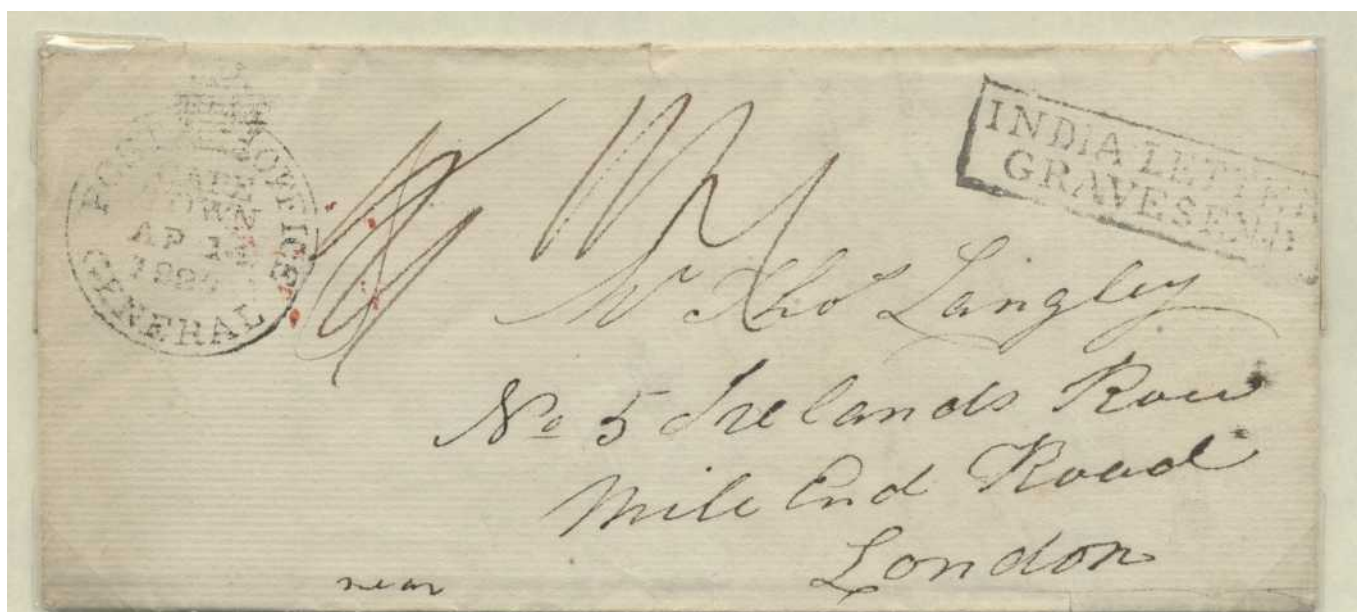 POST OFFICE
CAPE
TOWN
AP 1
GENERAL
INDIA LETTER
GRAVESEND
Mr Thos Langley
No 5 Irelands Row
Mile End Road
London
near